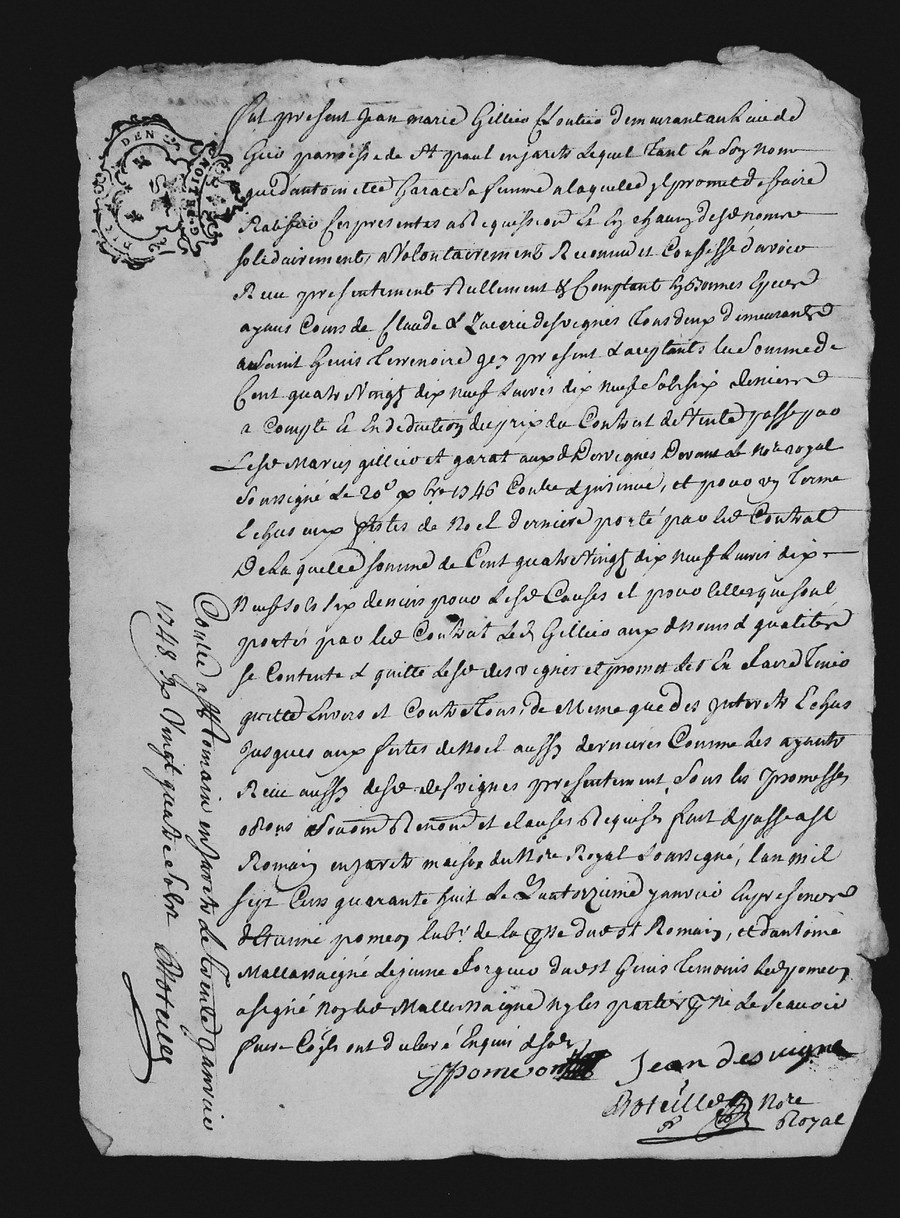 DEN
DROIT RE G
Fut present Jean marie Gillier Cloutier demeurant au lieu de
paroisse de St paul en jarets lequel tant en son nom
que d'antoinette Garat sa femme a laquelle il promet de faire
Ratifier Ces presentes a Requisition Et en chacun desd noms
solidairement, a Volontairement Reconnu et Confessé d'avoir
Receu presentement Reellement & Comptant En bonnes Especes
ayans Cours de Claude & desvignes tous deux demeurants
au saint Genis terrenoire icy present & aceptants la Somme de
Cent quatre Vingt dix neuf Livres dix neuf sols six deniers
a Compte Et En deduction du prix du Contrat de Vente passé par
Lesd Maries gillier et garat auxd Desvignes Devant Le Nore royal
Soussigné Le 20e 1746 Conlé & jnsinué, et pour un terme
Echus aux fêstes de Noel dernière porté par led Contrat
De Laquelle somme de Cent quatre Vingt dix neuf Livres dix
Neuf sols six deniers pour Lesd Causes et pour telles que sont
portés par led Contrait Led Gillier auxd Noms & qualités
se Contente & quitte Lesd desvignes et promet les En faire tenir
quitte Envers et Contre tous, de Meme que des jnterets Echus
jusques aux fêtes de Noel aussy dernieres Comme Les ayants
Receu aussy desd desvignes presentement, Sous les promesses
obons Renond et clauses Requises fait & passé a St
Romain en jarets maison du Nore Royal Soussigné, l'an mil
sept Cens quarante huit Le quatorzieme janvier En presence
d'Etienne pomeon labr de la pse dud St Romain, et d'antoine
Mallassaigne Lejeune forgeur dud St Genis Led pomeon
a signé Non led Mallassaigne Ny les parties pour ne Le scavoir
faire Coe ils ont declaré Enquis &
JPomeon Jean desvigne
Boteille Nore
Royal
Conlé a St Romain en jarets le trente janvier
1748. Rx Vingt quatre sols Boteille